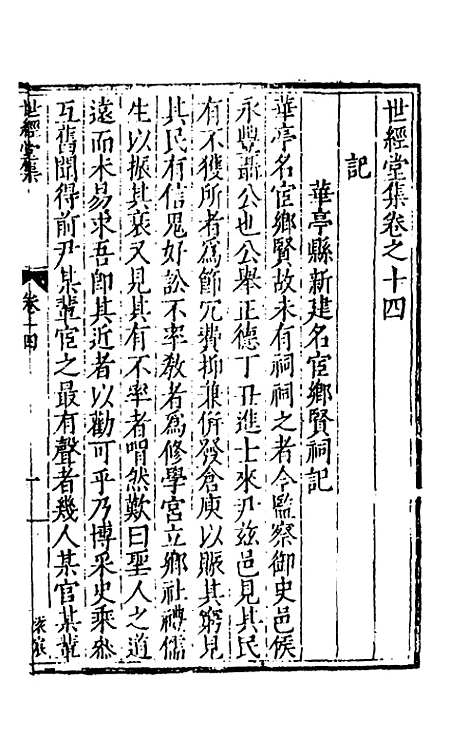 世經堂集卷之十四
記
華亭縣新建名宦鄉賢祠記
華亭名宦鄉賢故未有祠祠之者今監察御史邑侯
永豐聶公也公舉正德丁丑進士來尹玆邑見其民
有不獲所者爲節冗費抑𠔥併發倉庾以賑其窮見
其民有信鬼好訟不率敎者爲修學宮立鄉社禮儒
生以振其衰又見其有不率者喟然歎曰聖人之道
遠而未易求吾卽其近者以勸可乎乃博采史乘參
互舊聞得前尹某軰宦之最有聲者幾人某官某軰
世經堂集
卷十四
一